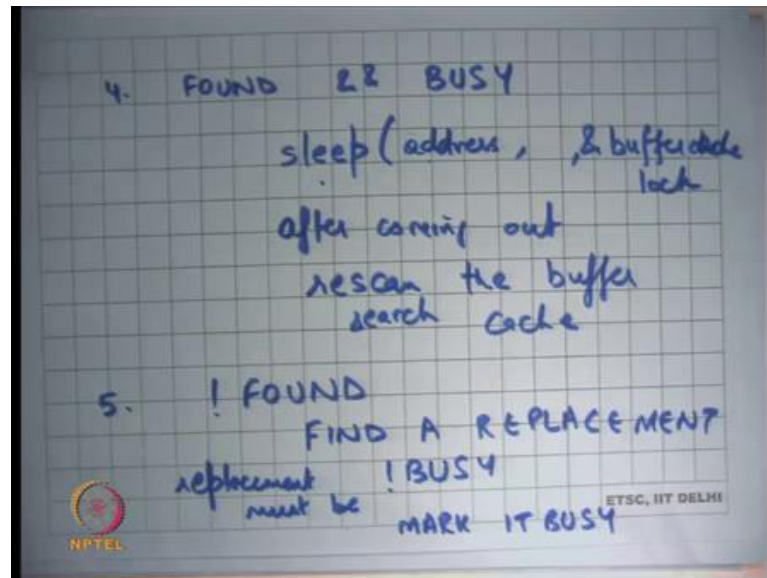 4. FOUND && BUSY
sleep( address , , & buffercache
lock
after coming out
rescan the buffer
search cache
5. ! FOUND
FIND A REPLACEMENT
replacement !BUSY
must be
MARK IT BUSY
ETSC, IIT DELHI
NPTEL